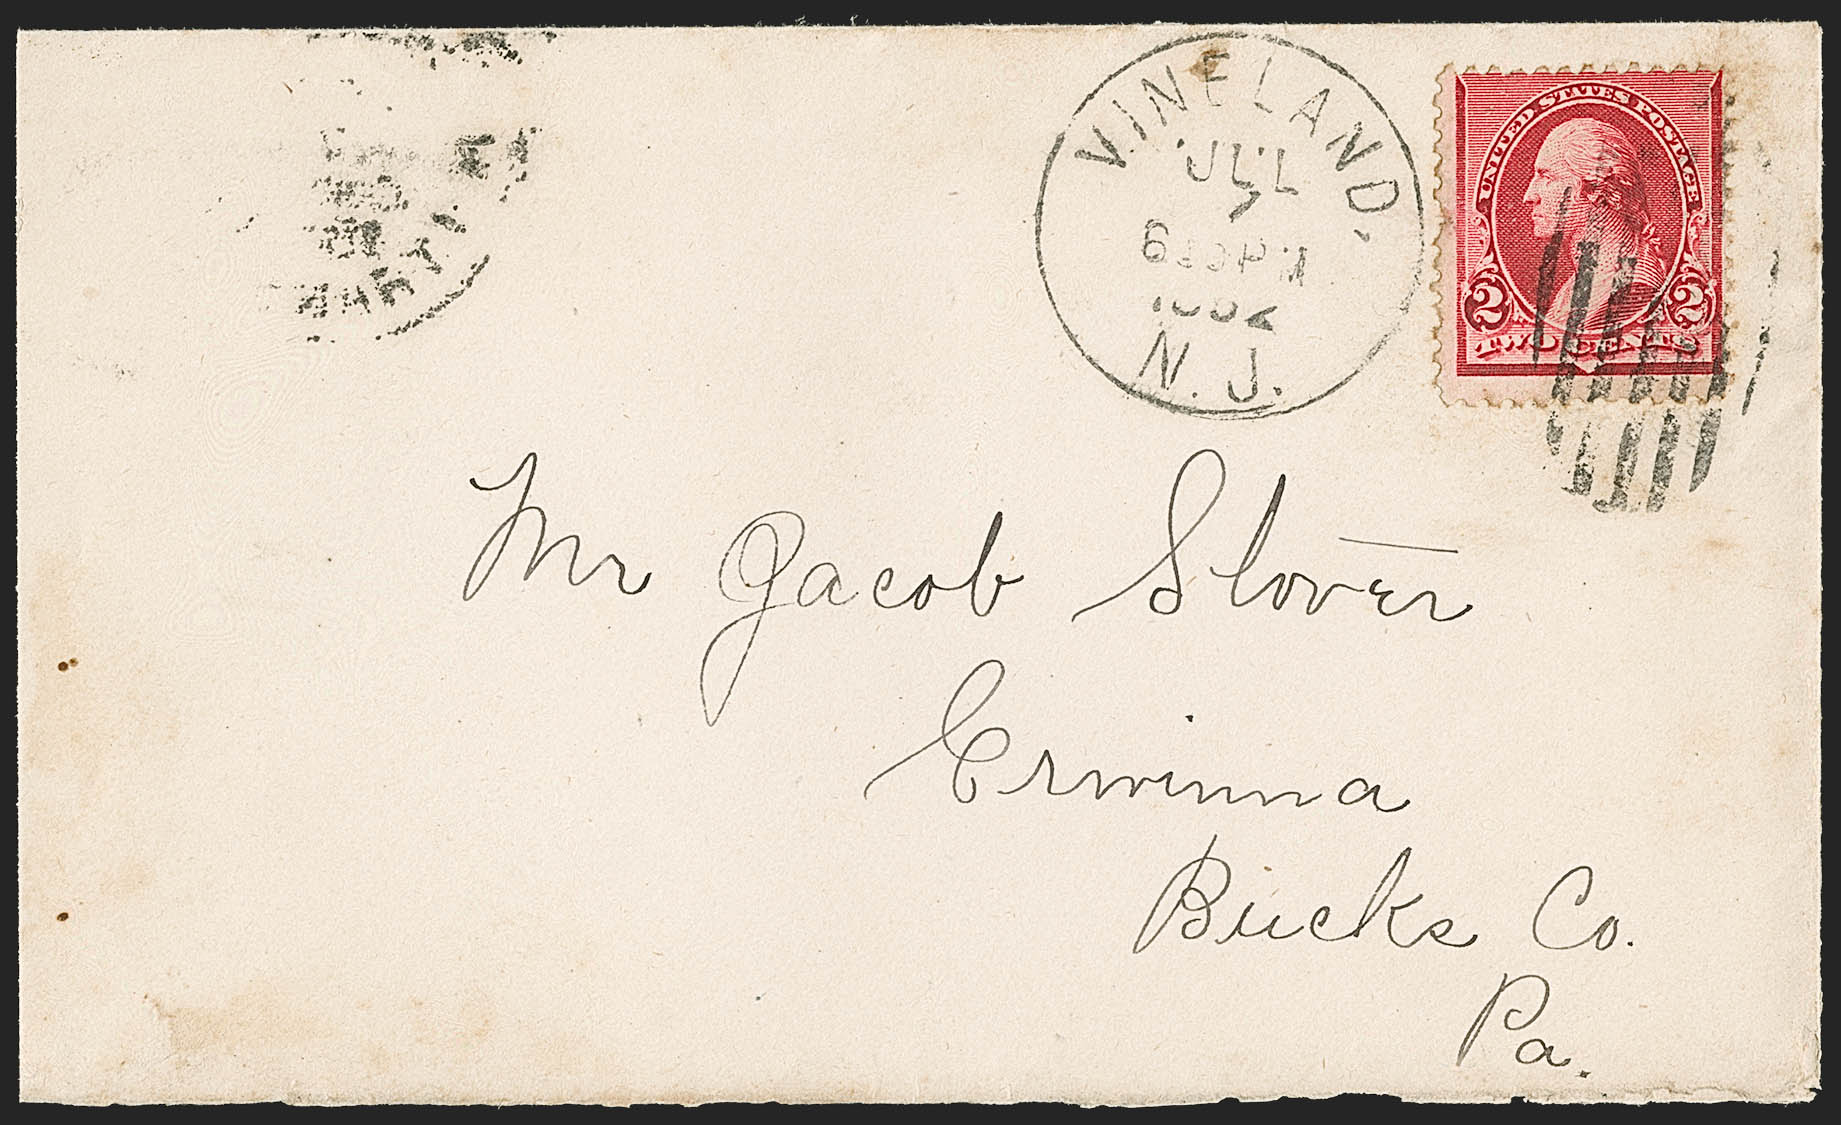 VINELAND,
JUL
7
6 30 PM
1892
N.J.
UNITED STATES POSTAGE
2 2
TWO CENTS
Mr Jacob Stover
Erwinna
Bucks Co.
Pa.